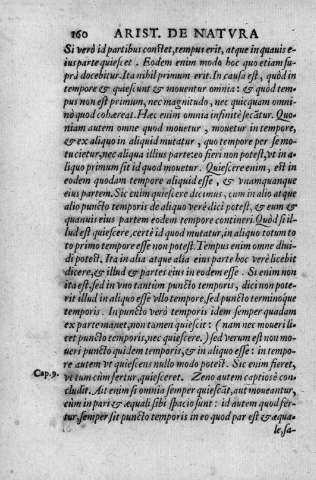 160 ARIST. DE NATVRA
Si verò id partibus constet, tempus erit, atque in quauis e-
ius parte quiescet. Eodem enim modo hoc quo etiam su-
prà docebitur. Ita nihil primum erit. In causa est, quòd in
tempore & quiescunt & mouentur omnia: & quòd tem-
pus non est primum, nec magnitudo, nec quicquam omni-
nò quod cohæreat. Hæc enim omnia infinitè secãtur. Quo-
niam autem omne quod mouetur, mouetur in tempore,
& ex aliquo in aliquid mutatur, quo tempore per se mo-
tu cietur, nec aliqua illius parte: eo fieri non potest, vt in a-
liquo primùm sit id quod mouetur. Quiescere enim, est in
eodem quodam tempore aliquid esse, & vnamquanque
eius partem. Sic enim quiescere dicimus, cum in alio atque
alio puncto temporis de aliquo verè dici potest, & eum &
quanuis eius partem eodem tempore contineri. Quòd si il-
lud est quiescere, certè id quod mutatur, in aliquo totum to
to primo tempore esse non potest. Tempus enim omne diui-
di potest. Ita in alia atque alia eius parte hoc verè licebit
dicere, & illud & partes eius in eodem esse. Si enim non
ita est, sed in vno tantùm puncto temporis, dici non pote-
rit illud in aliquo esse vllo tempore, sed puncto terminóque
temporis. In puncto verò temporis idem semper quadam
ex parte manet, non tamen quiescit: (nam nec moueri li-
cet puncto temporis, nec quiescere.) sed verum est non mo-
ueri puncto quidem temporis, & in aliquo esse: in tempo-
re autem vt quiescens nullo modo potest. Sic enim fieret,
Cap. 9. vt tum cùm fertur, quiesceret. Zeno autem captiosè con-
cludit. Ait enim si omnia semper quiescãt, aut moueantur,
cùm in pari & æquali sibi spacio sunt: id autem quod fer-
tur, semper sit puncto temporis in eo quod par est & æqua-
le, fa-